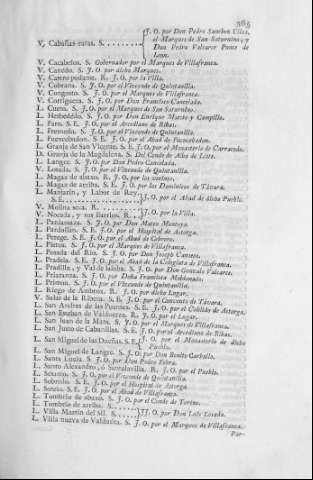 365
J. O. por Don Pedro Sanchez Ulloa,
V. Cabañas raras. S. ........ el Marques de San Saturnino, y
Don Pedro Valcarce Ponce de
Leon.
V. Cacabelos. S. Gobernador por el Marques de Villafranca.
V. Canedo. S. J. O. por dicho Marques.
V. Cantro podame. R. J. O. por la Villa.
V. Cobrana. S. J. O. por el Vizconde de Quintanilla.
V. Congosto. S. J. O. por el Marques de Villafranca.
V. Cortiguera. S. J. O. por Don Francisco Cancelado.
L. Cueto. S. J. O. por el Marques de San Saturnino.
L. Hesbedédo. S. J. O. por Don Enrique Macto y Campillo.
L. Faro. S. E. J. O. por el Arcediano de Ribas.
L. Fresnedo. S. J. O. por el Vizconde de Quintanilla.
L. Fuentesbedon. S. E. J. O. por el Abad de Foncebadon.
L. Granja de San Vicente. S. E. J. O. por el Monasterio de Carracedo.
D. Granja de la Magdalena. S. Del Conde de Alba de Liste.
L. Langre. S. J. O. por Don Pedro Cancelada.
V. Losada. S. J. O. por el Vizconde de Quintanilla.
L. Magaz de abaxo. R. J. O. por los vecinos.
L. Magaz de arriba. S. E. J. O. por los Dominicos de Távara.
L. Manjarin, y Labor de Rey,
S. E. ........ J. O. por el Abad de dicho Pueblo.
V. Molina seca. R. ........
V. Noceda, y sus Barrios. R. .. J. O. por la Villa.
L. Pardamaza. S. J. O. por Don Mateo Montoya.
L. Paradasilin. S. E. J. O. por el Hospital de Astorga.
L. Pereje. S. E. J. O. por el Abad de Cebrero.
L. Pieros. S. J. O. por el Marques de Villafranca.
L. Posada del Rio. S. J. O. por Don Joseph Canseco.
L. Pradela. S. E. J. O. por el Abad de la Colegiata de Villafranca.
L. Pradilla, y Val de laloba. S. J. O. por Don Gonzalo Valcarce.
L. Priaranza. S. J. O. por Doña Francisca Maldonado.
L. Primon. S. J. O. por el Vizconde de Quintanilla.
L. Riego de Ambros. R. J. O. por dicho Lugar.
V. Salas de la Ribera. S. E. J. O. por el Convento de Távara.
L. San Andres de las Puentes. S. E. J. O. por el Cabildo de Astorga.
L. San Esteban de Valdueza. R. J. O. por el Lugar.
L. San Juan de la Mata. S. J. O. por el Marques de Villafranca.
L. San Justo de Cabanillas. S. E. J. O. por el Arcediano de Ribas.
L. San Miguel de las Dueñas. S. E. J. O. por el Monasterio de dicho
Pueblo.
L. San Miguel de Langre. S. J. O. por Don Benito Carballo.
L. Santa Loula. S. J. O. por Don Pedro Yebra.
L. Santo Alexandro, ó Santalavilla. R. J. O. por el Pueblo.
L. Sésamo. S. J. O. por el Vizconde de Quintanilla.
L. Sobredo. S. E. J. O. por el Hospital de Astorga.
L. Soteto. S. E. J. O. por el Abad de Villafranca.
L. Tombrio de abaxo. S. J. O. por el Conde de Toreno.
L. Tombrio de arriba. S. ....
L. Villa Martin del Sil. S. .... J. O. por Don Luis Losada.
L. Villa nueva de Valdueza. S. J. O. por el Marques de Villafranca.
Par-